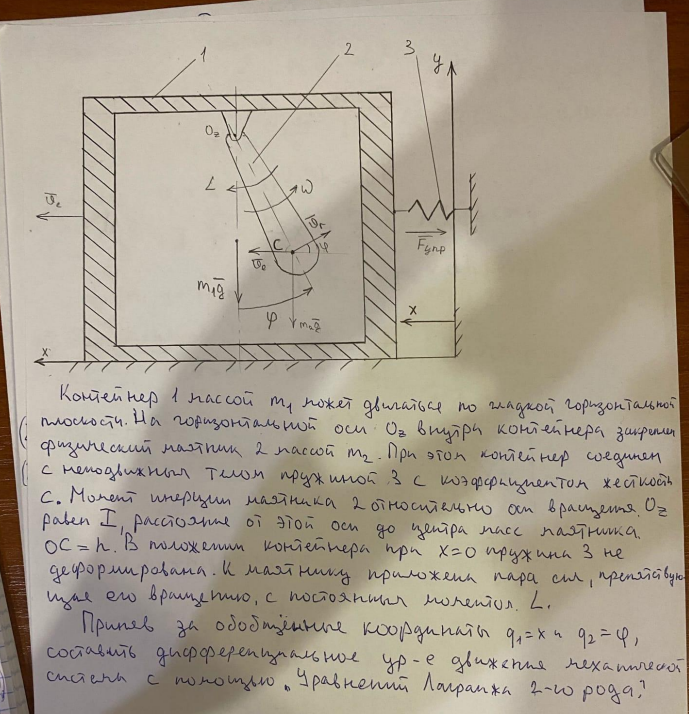 1
2
3
y
Oz
L
ω
v̄e
v̄r
C
φ
v̄e
F̄упр
m₁ḡ
φ
m₂ḡ
x
x
Контейнер 1 массой m₁ может двигаться по гладкой горизонтальной
плоскости. На горизонтальной оси Oz внутри контейнера закреплен
физический маятник 2 массой m₂. При этом контейнер соединен
с неподвижным телом пружиной 3 с коэффициентом жесткость
C. Момент инерции маятника 2 относительно оси вращения Oz
равен I, расстояние от этой оси до центра масс маятника
OC = h. В положении контейнера при x=0 пружина 3 не
деформирована. К маятнику приложена пара сил, препятствую-
щие его вращению, с постоянным моментом L.
Приняв за обобщённые координаты q₁=x и q₂=φ,
составить дифференциальное ур-е движения механической
системы с помощью „Уравнений Лагранжа 2-го рода."